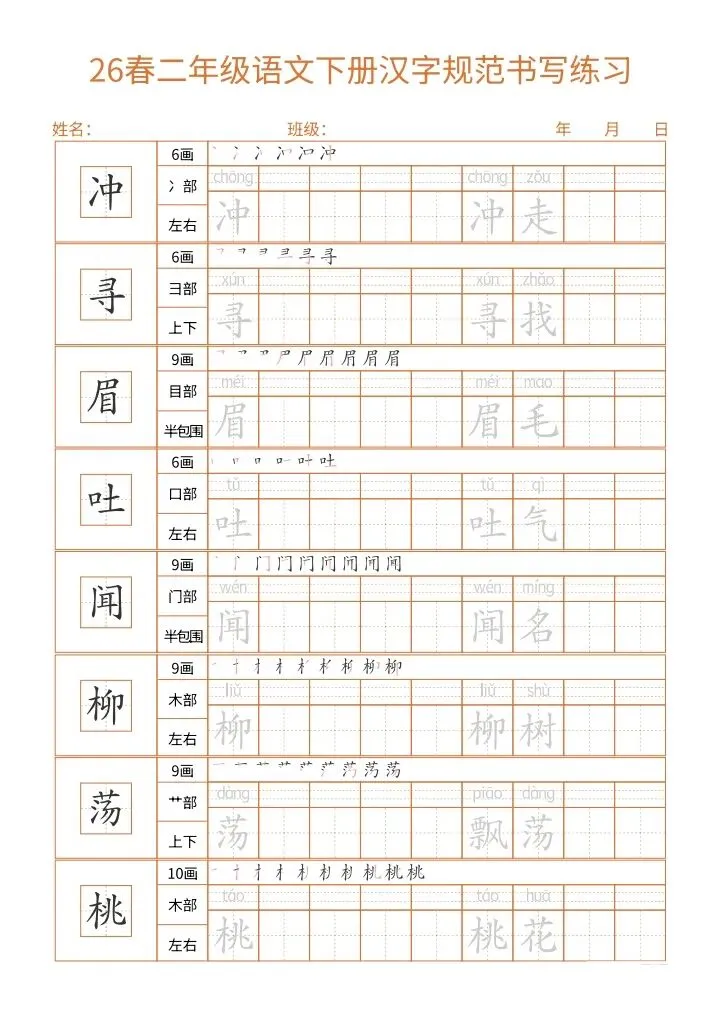 26春二年级语文下册汉字规范书写练习
姓名: 班级: 年 月 日
冲 6画 丶 冫 冫 冲 冲 冲
冫部 chōng chōng zǒu
左右 冲 冲 走
寻 6画 寻 寻
彐部 xún xún zhǎo
上下 寻 寻 找
眉 9画 眉 眉 眉
目部 méi méi mao
半包围 眉 眉 毛
吐 6画 吐 吐
口部 tǔ tǔ qì
左右 吐 吐 气
闻 9画 门 闻 闻
门部 wén wén míng
半包围 闻 闻 名
柳 9画 柳 柳
木部 liǔ liǔ shù
左右 柳 柳 树
荡 9画 荡 荡 荡
艹部 dàng piāo dàng
上下 荡 飘 荡
桃 10画 桃 桃 桃
木部 táo táo huā
左右 桃 桃 花